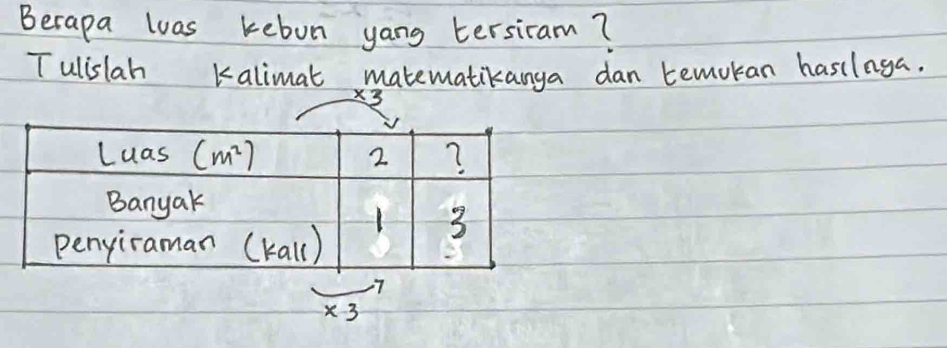 Berapa luas kebun yang tersiram?
Tulislah kalimat matematikanya dan temukan hasilnya.
x3
Luas (m²) 2 ?
Banyak
penyiraman (kali) 1 3
x3